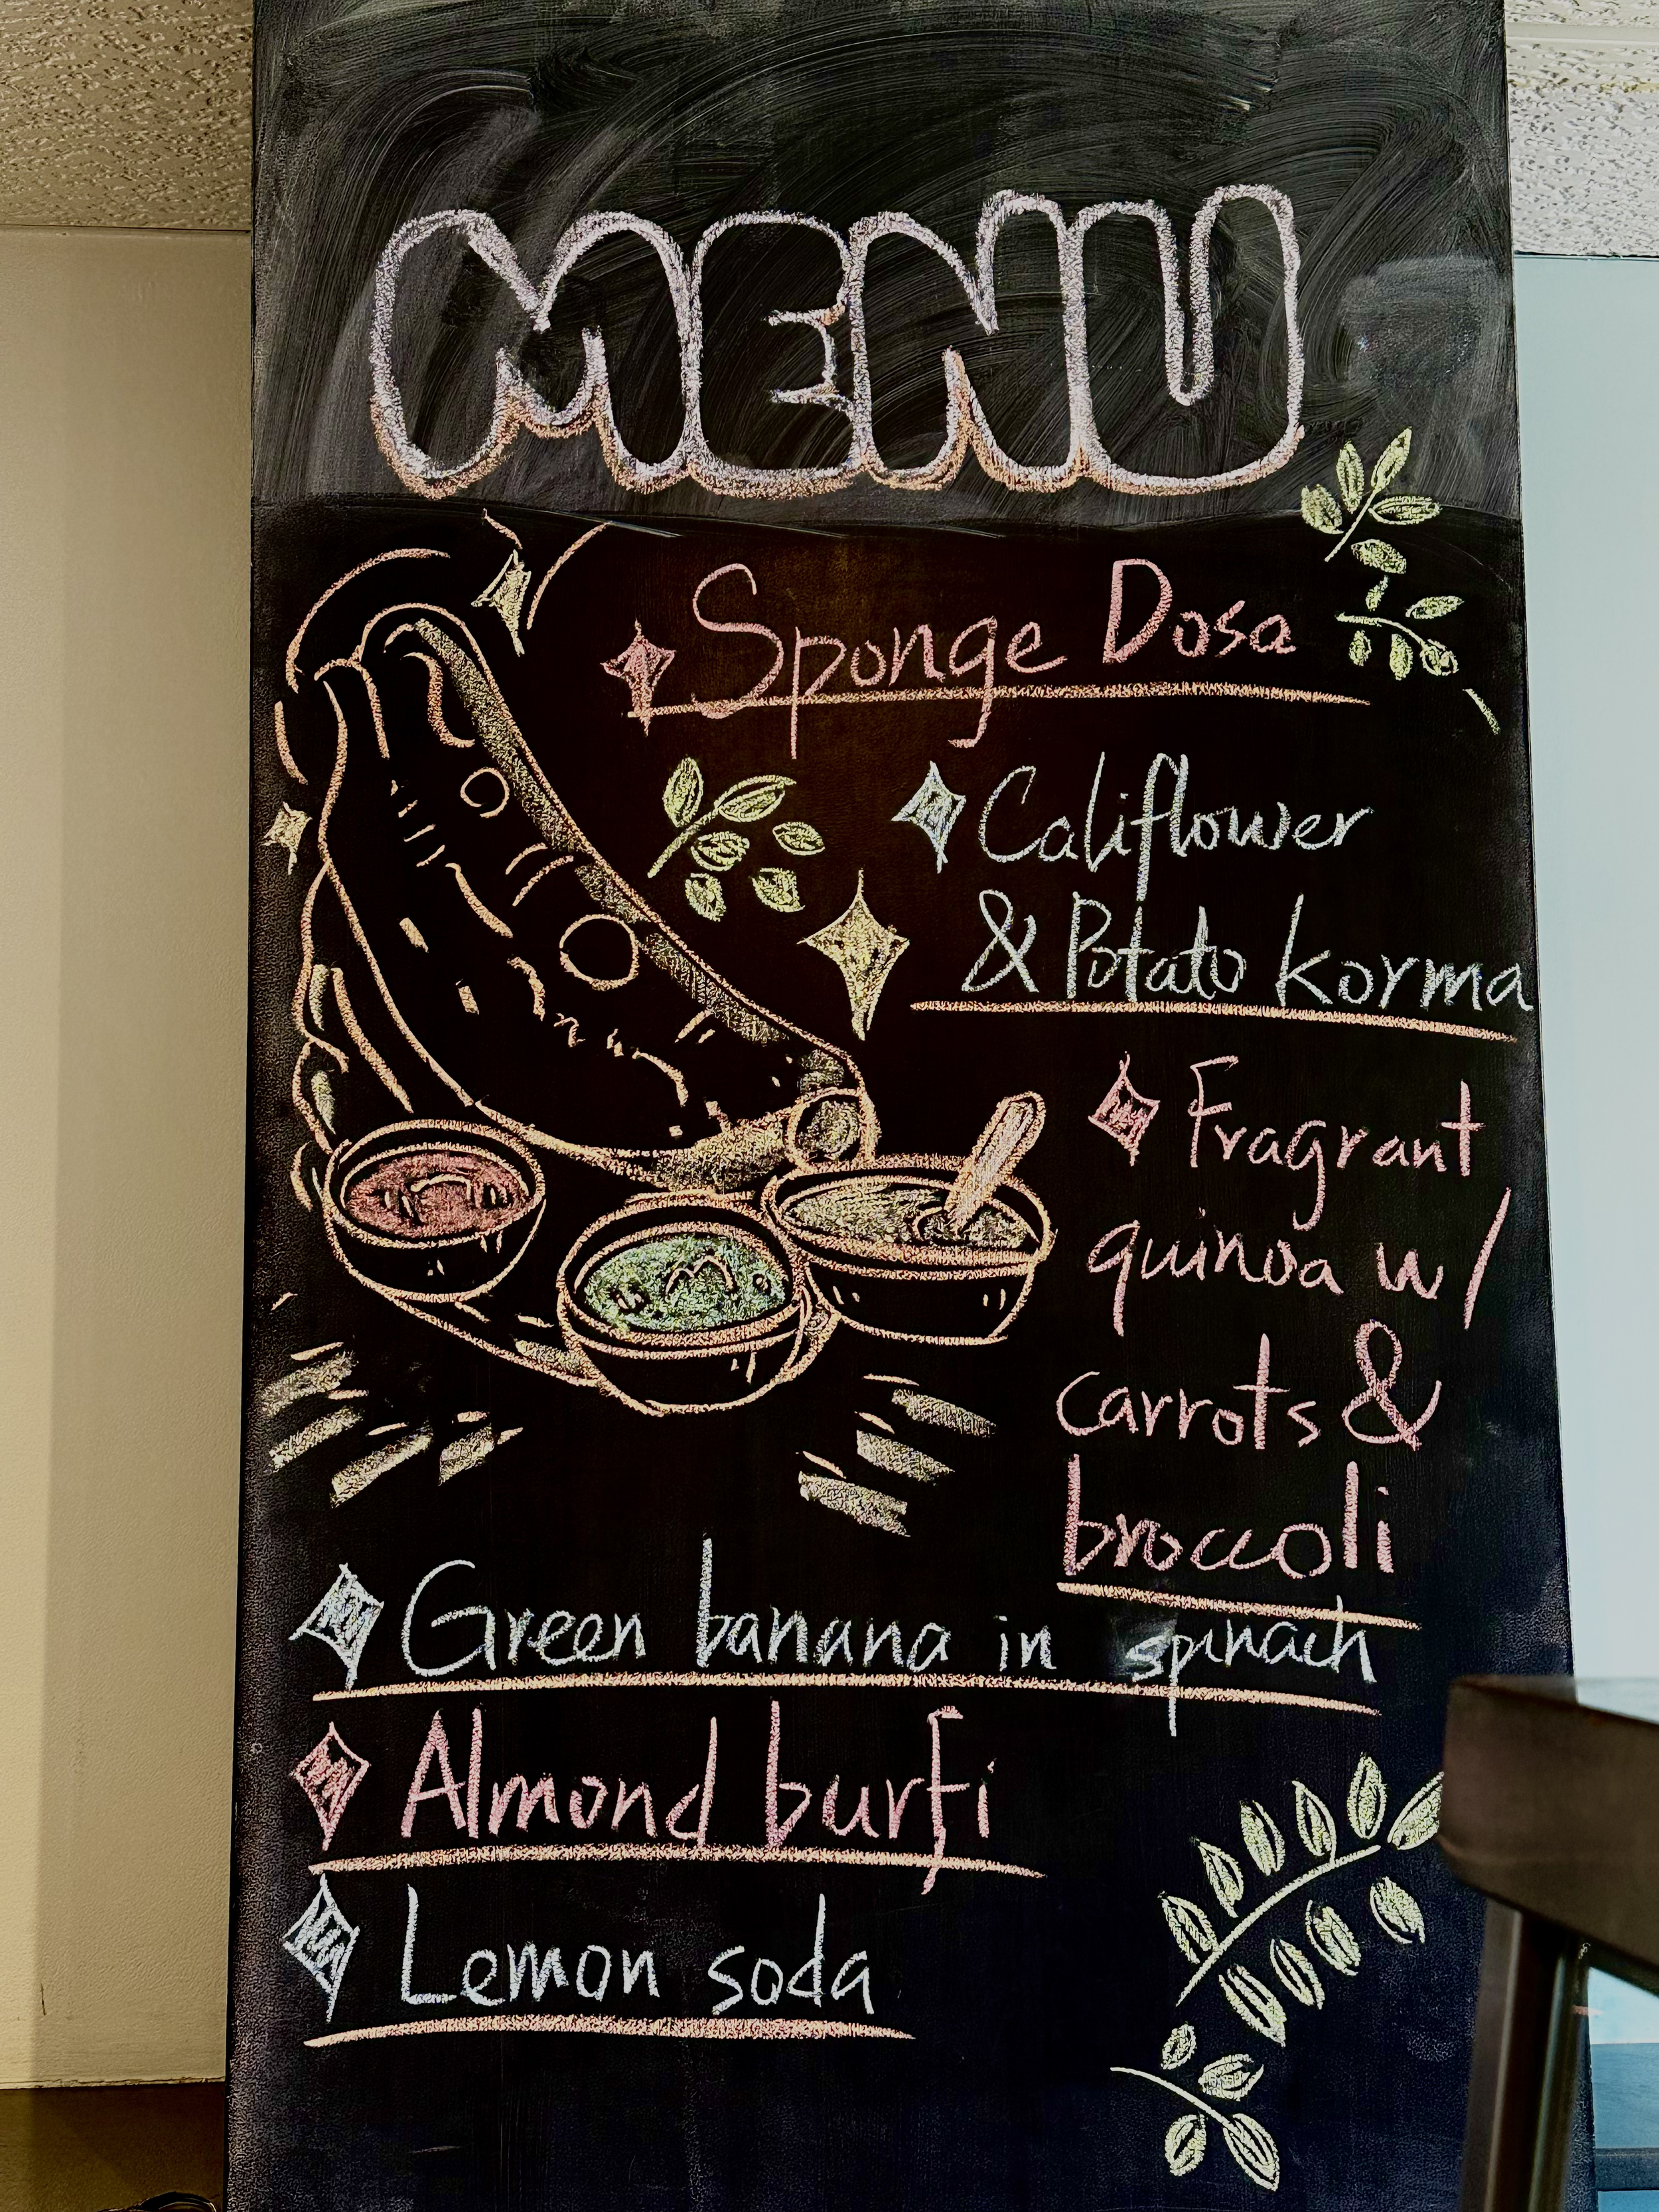 MENU
Sponge Dosa
Califlower
& Potato korma
Fragrant
quinoa w/
carrots &
broccoli
Green banana in spinach
Almond burfi
Lemon soda